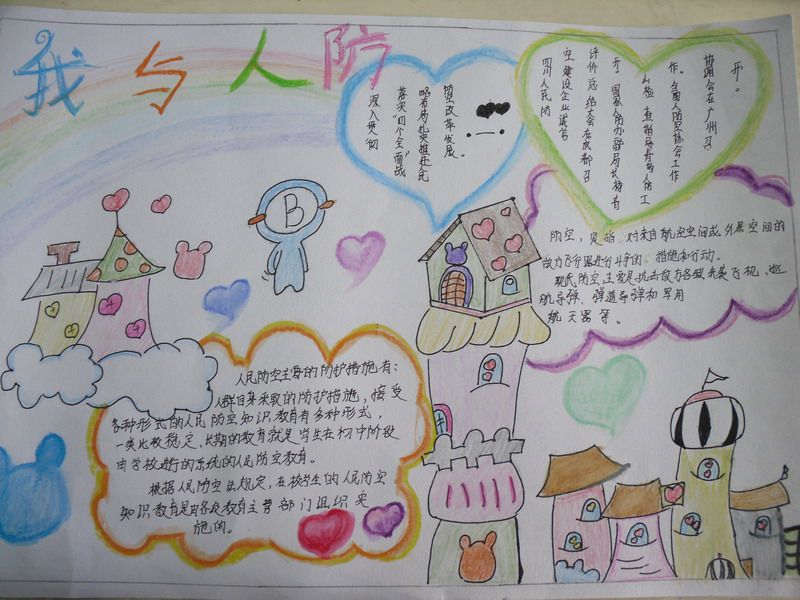 我与人防
深入贯彻
落实“四个全面”战
略布局扎实推进民
防空改革发展。
四川人民防
空建设企业诚信
评价总结大会在成都召
开。国家人防办副局长杨
山检查指导青岛人防工
作。全国人防空协会工作
协调会在广州召
开。
B
防空,是指对来自航空空间或外层空间的
敌方飞行器进行斗争的措施和行动。
现代防空主要是抗击敌方各种来袭飞机、巡
航导弹、弹道导弹和军用
航天器等。
人民防空主要的防护措施有:
人群自身采取的防护措施,接受
各种形式的人民防空知识教育有多种形式,
一类比较稳定、长期的教育就是学生在初中阶段
由学校进行的系统的人民防空教育。
根据人民防空法规定,在校学生的人民防空
知识教育是由各级教育主管部门组织实
施的。